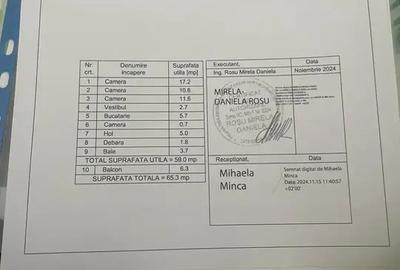 Nr. crt. Denumire incapere Suprafata utila [mp]
1 Camera 17.2
2 Camera 10.6
3 Camera 11.6
4 Vestibul 2.7
5 Bucatarie 5.7
6 Camera 0.7
7 Hol 5.0
8 Debara 1.8
9 Baie 3.7
TOTAL SUPRAFATA UTILA = 59.0 mp
10 Balcon 6.3
SUPRAFATA TOTALA = 65.3 mp
Executant, Data
Ing. Rosu Mirela Daniela Noiembrie 2024
MIRELA-
DANIELA ROSU
CERTIFICAT
ROSU MIRELA
DANIELA
Receptionat, Data
Mihaela
Minca
Semnat digital de Mihaela
Minca
Data: 2024.11.15 11:40:57
+02'00'